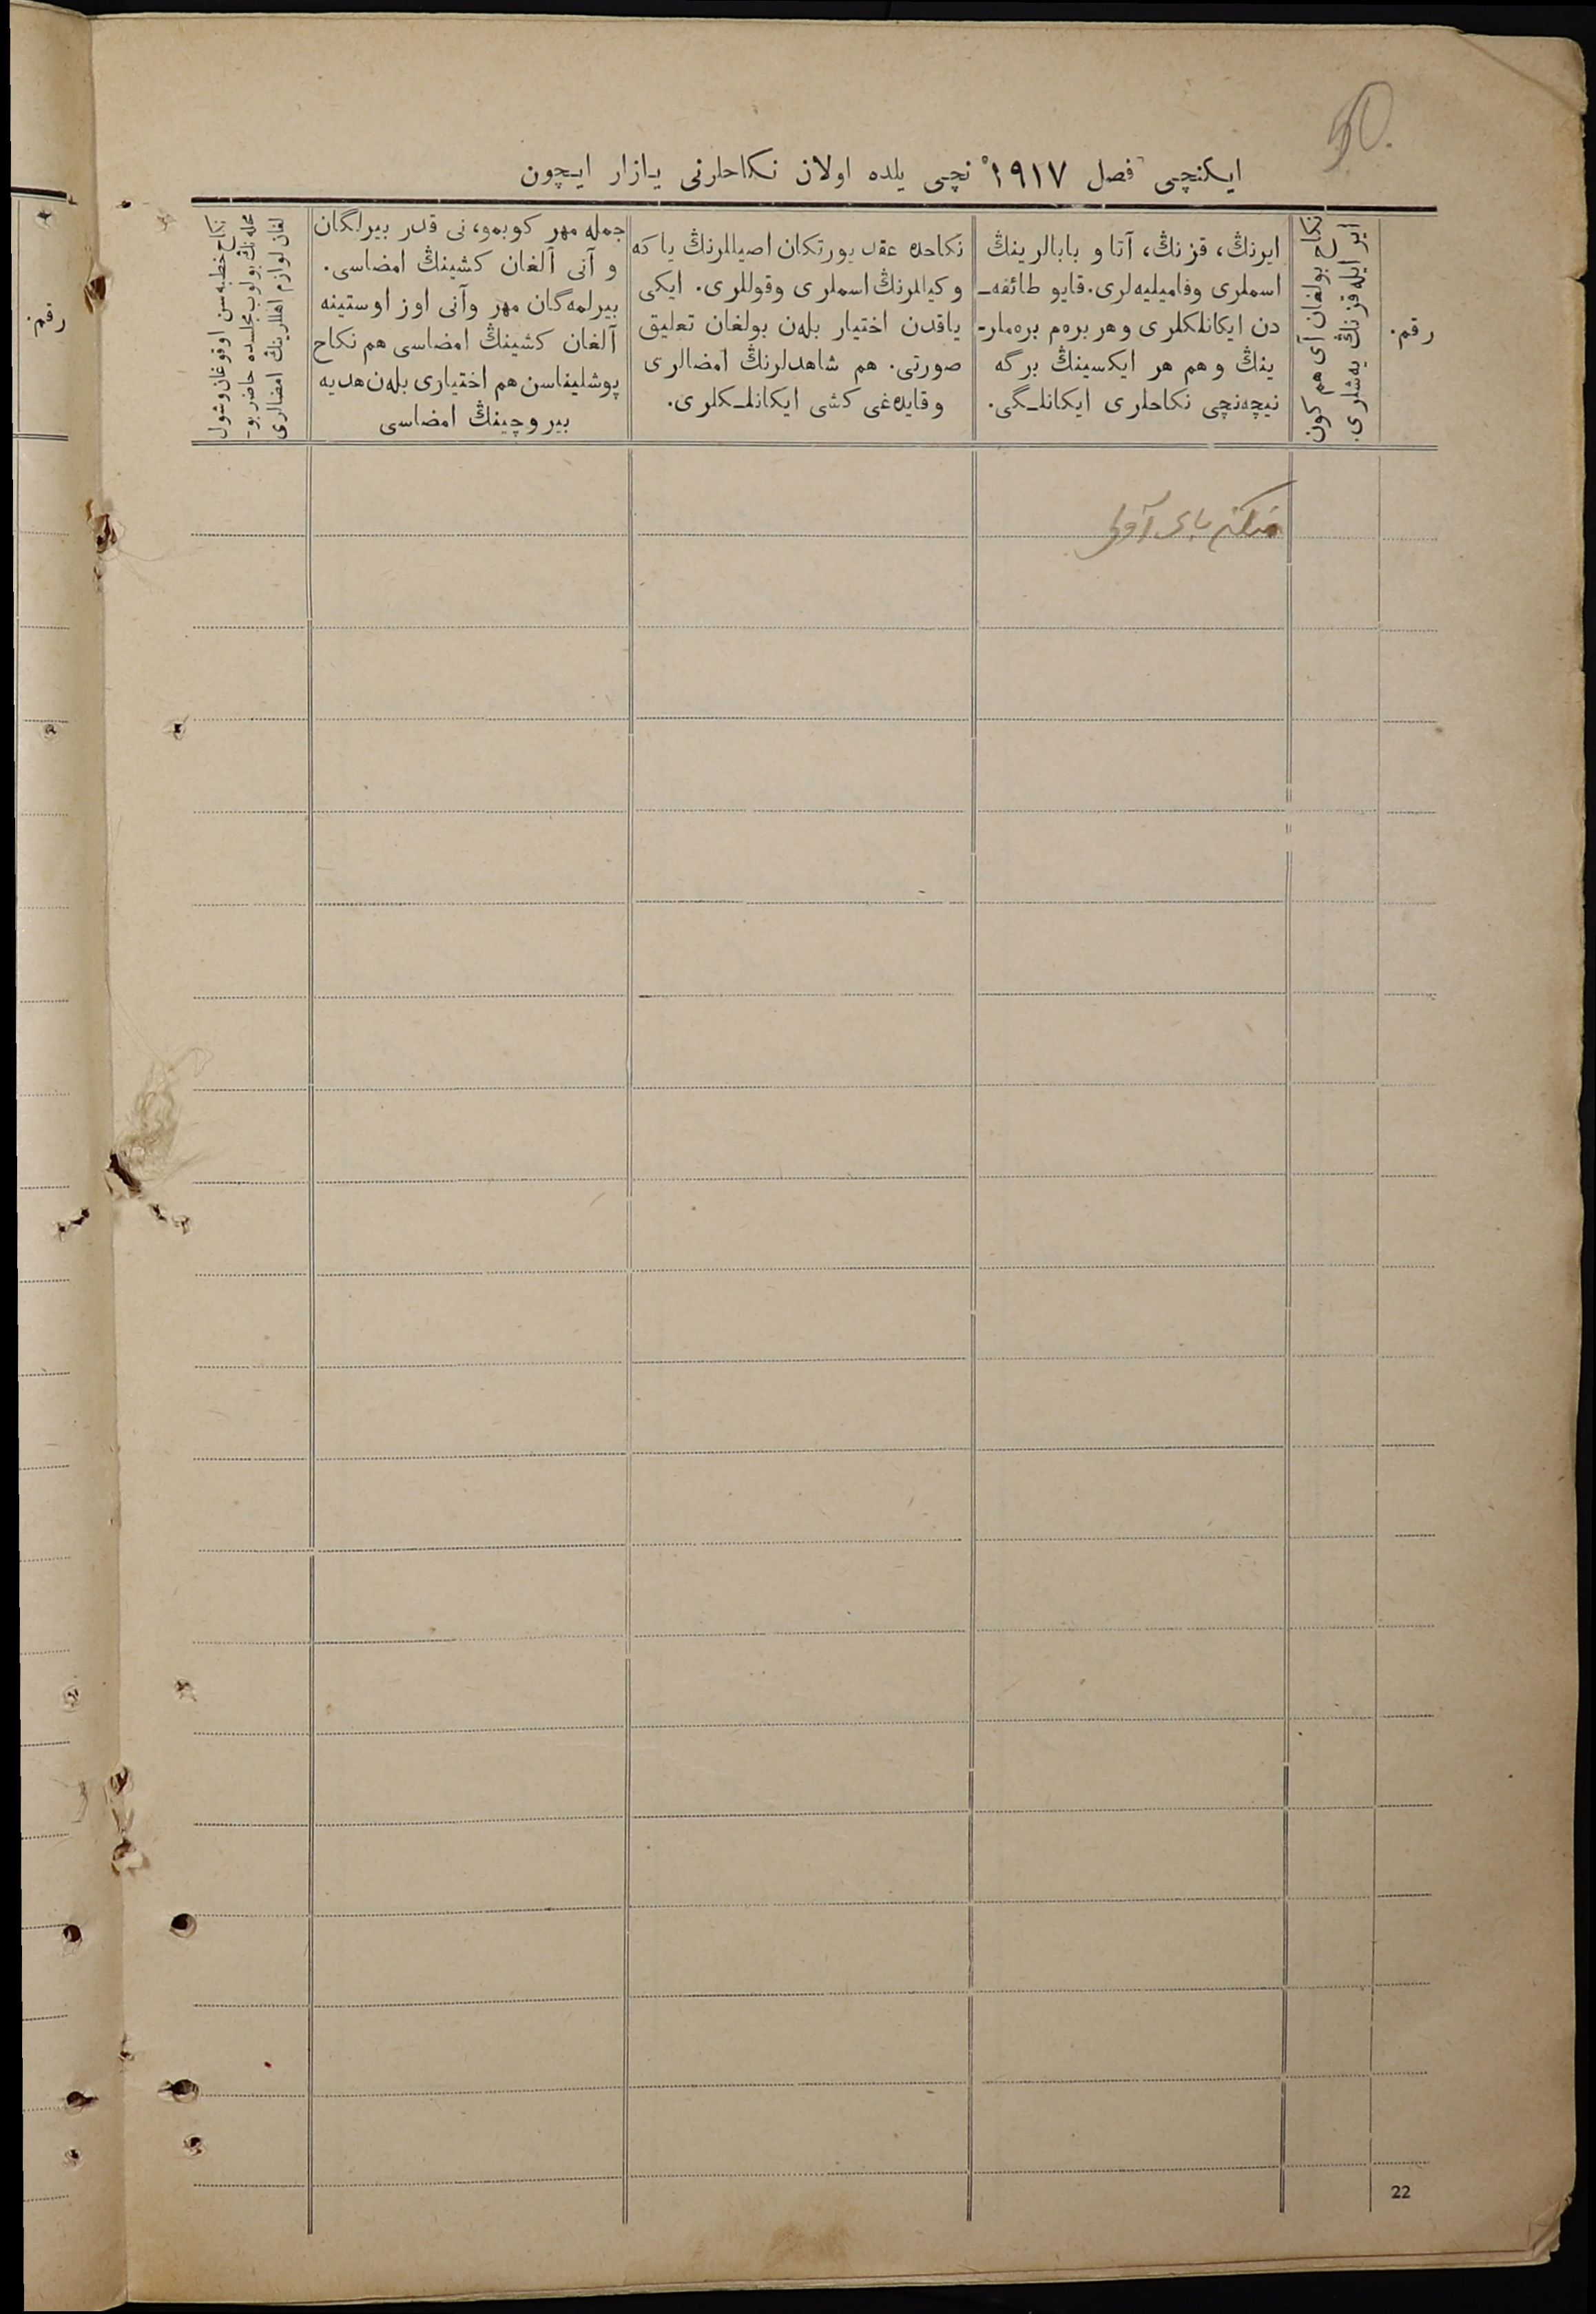 50.
ایکنچی فصل ١٩١٧ نچی یلده اولان نکاحلرنی یازار ایچون
رقم.
نکاح بولغان آی هم کون
ایر ایله قزنڭ یه‌شلری.
ایرنڭ، قزنڭ، آتا و بابالرینڭ
اسملری وفامیلیه‌لری. قایو طائفه‌ـ
دن ایکانلکلری وهر بره‌م بره‌ملرـ
ینڭ وهم هر ایکسینڭ برگه
نیچه‌نچی نکاحلری ایکانلـگی.
نکاحده عقد یورتکان اصیللرنڭ یا که
وکیللرنڭ اسملری وقوللری. ایکی
یاقدن اختیار بله‌ن بولغان تعلیق
صورتی. هم شاهدلرنڭ امضالری
وقایده‌غی کشی ایکانلـکلری.
جمله مهر کوبمو، نی قدر بیرلگان
و آنی آلغان کشینڭ امضاسی.
بیرلمه‌گان مهر وآنی اوز اوستینه
آلغان کشینڭ امضاسی هم نکاح
پوشلیناسن هم اختیاری بله‌ن هدیه
بیروچینڭ امضاسی
نکاح خطبه‌سن اوقوغان وشول
محله‌نڭ بولوب مجلسده حاضر بوـ
لغان لوازم اهللرینڭ امضالری
رقم.
22